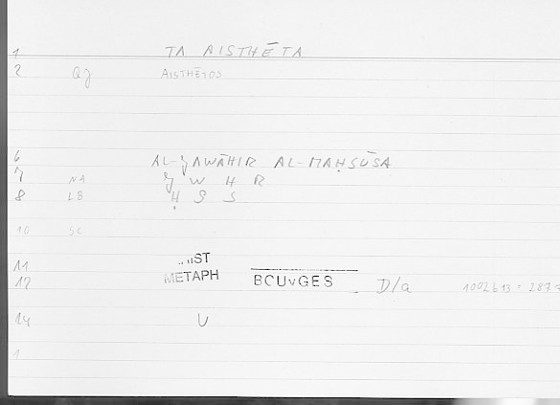 1 TA AISTHĒTA
2 QJ AISTHĒTOS
6 AL-ǦAWĀHIR AL-MAḤSŪSA
7 NA Ǧ W H R
8 LB Ḥ S S
10 SL
11 ARIST
12 METAPH BOUYGES D/a 1002b13 = 287
14 U
1